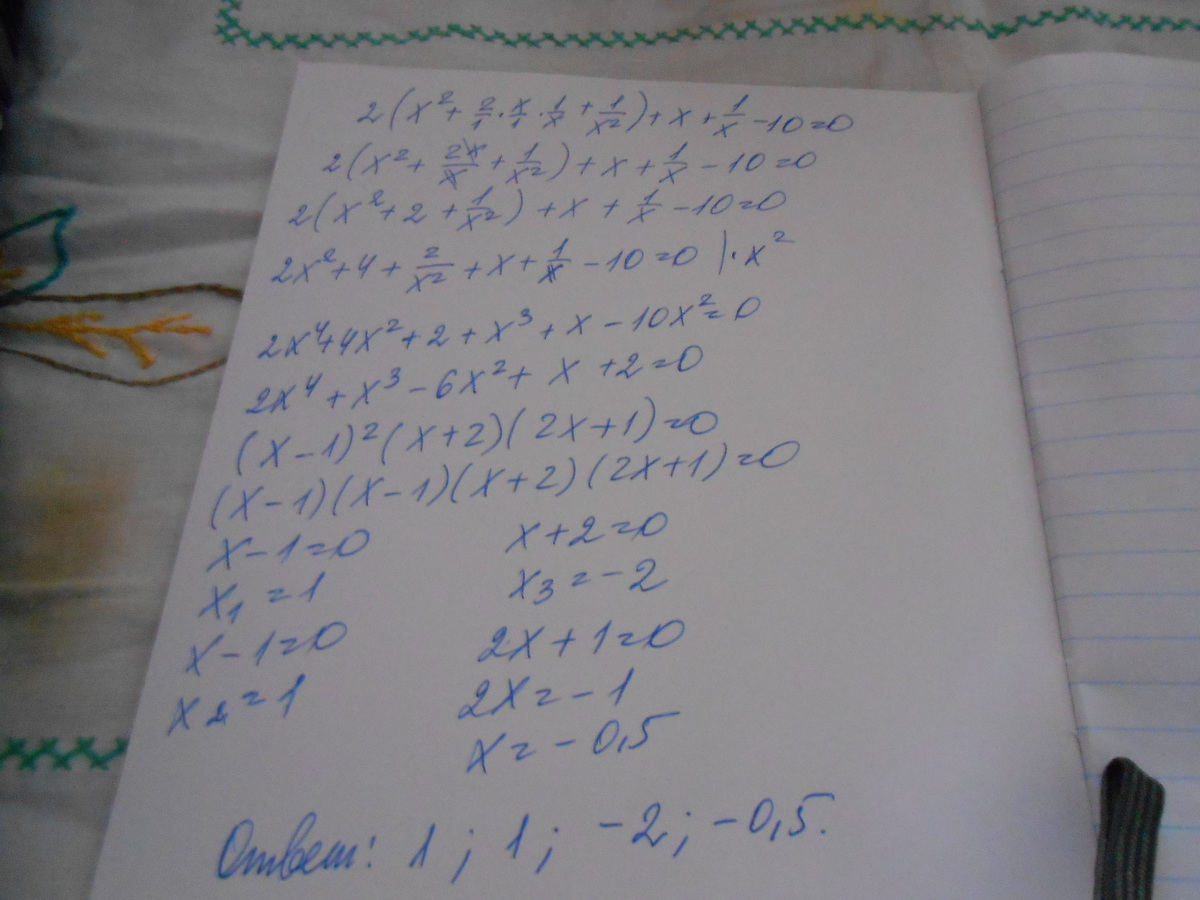 2(x² + 2/1 · x/1 · 1/x + 1/x²) + x + 1/x - 10 = 0
2(x² + 2x/x + 1/x²) + x + 1/x - 10 = 0
2(x² + 2 + 1/x²) + x + 1/x - 10 = 0
2x² + 4 + 2/x² + x + 1/x - 10 = 0 | · x²
2x⁴ + 4x² + 2 + x³ + x - 10x² = 0
2x⁴ + x³ - 6x² + x + 2 = 0
(x - 1)² (x + 2)(2x + 1) = 0
(x - 1)(x - 1)(x + 2)(2x + 1) = 0
x - 1 = 0
x₁ = 1
x - 1 = 0
x₂ = 1
x + 2 = 0
x₃ = -2
2x + 1 = 0
2x = -1
x = -0,5
Ответ: 1 ; 1 ; -2 ; -0,5.